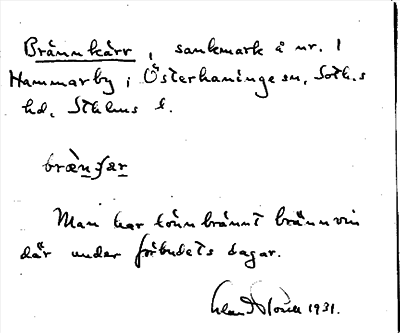 Brännkärr, sankmark å nr. 1
Hammarby i Österhaninge sn, Soth.s
hd, Sthlms l.
bræ̀nɕær
Man har lönnbrännt brännvin
där under förbudets dagar.
1931.